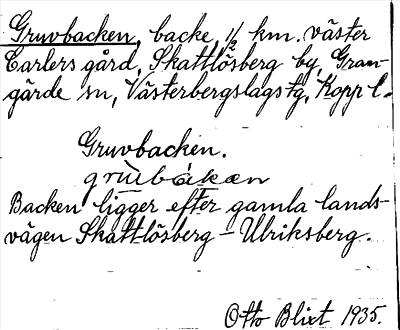 Gruvbacken, backe, 1/2 km. väster
Earlers gård, Skattlösberg by, Gran-
gärde sn, Västerbergslags tg, Kopp l.
Gruvbacken.
grùbákæn
Backen ligger efter gamla lands-
vägen Skattlösberg - Ulriksberg.
Otto Blixt 1935.